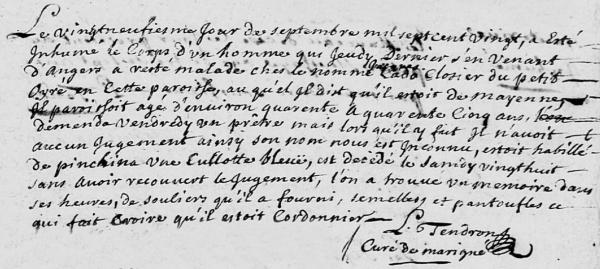 Le vingtneufiesme Jour de septembre mil sept cent vingt, a esté
Inhumé le Corps d'un homme qui Jeudy Dernier s'en Venant
d'Angers a resté malade ches le nommé Cado Closier du petit
Ayré en Cette paroisse, au quel Il dist qu'il estoit de mayenne,
Il paroissoit agé d'environ quarente a quarente Cinq ans,
demenda Vendredy un prêtre mais lors qu'il y fut Il n'avoit
aucun Jugement ainsy son nom nous est Inconnu, estoit habillé
de pinchina une Cullotte bleüe, est decedé le samdy vingthuit
sans avoir recouvert le Jugement, l'on a trouvé un memoire dans
ses heures, de souliers qu'il a fourni, semelles et pantoufles ce
qui fait Croire qu'il estoit Cordonnier
L. Tendron
Curé De marigné